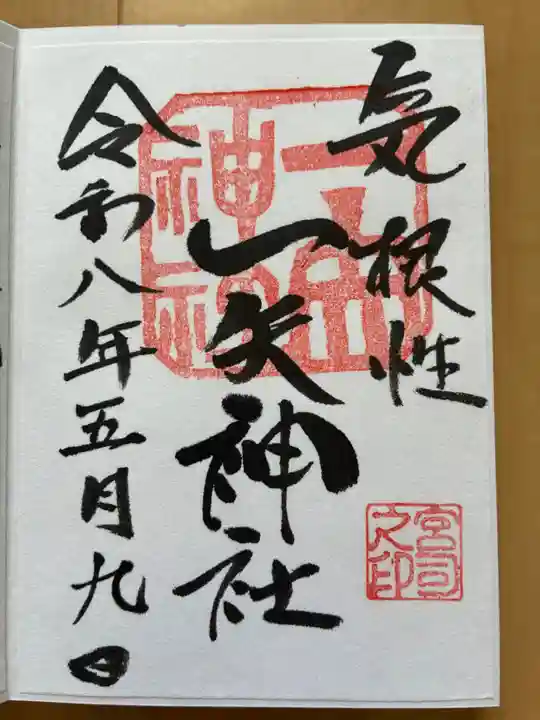 気根性
一矢神社
令和八年五月九日
宮司之印